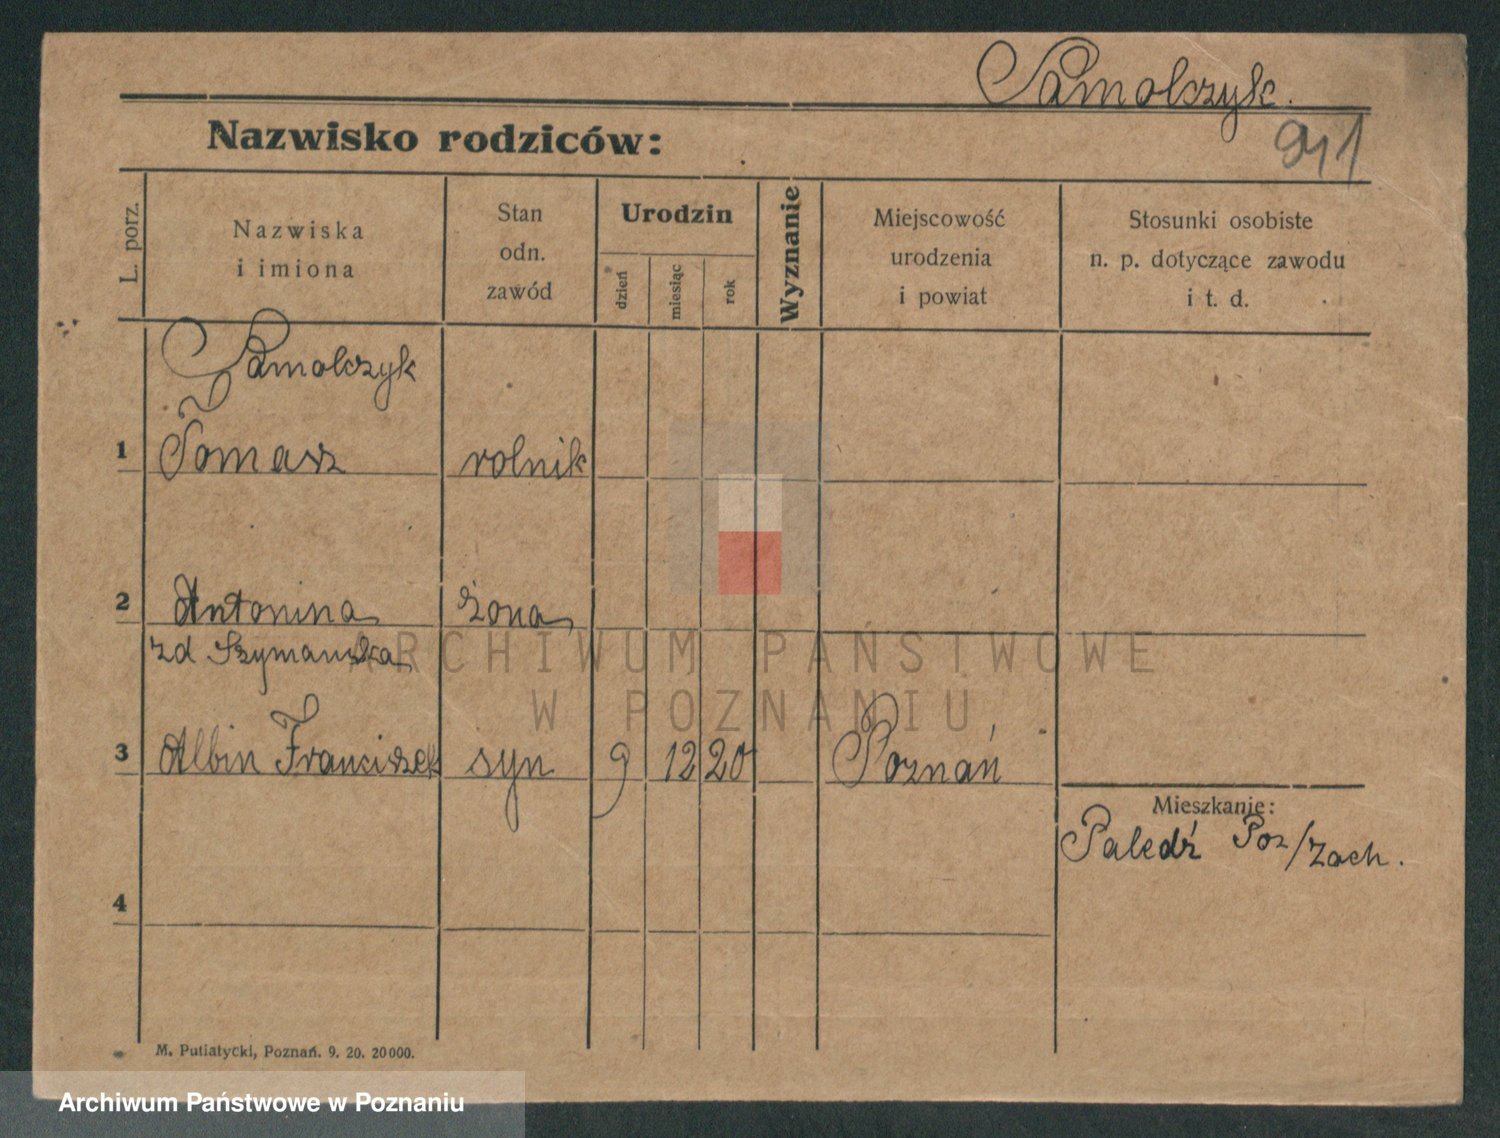 Samolczyk.
Nazwisko rodziców:
911
L. porz.
Nazwiska
i imiona
Stan
odn.
zawód
Urodzin
dzień
miesiąc
rok
Wyznanie
Miejscowość
urodzenia
i powiat
Stosunki osobiste
n. p. dotyczące zawodu
i t. d.
Samolczyk
1 Tomasz rolnik
2 Antonina żona
zd Szymańska
3 Albin Franciszek syn 9 12 20 Poznań
Mieszkanie:
Palędź Poz/Zach.
4
M. Putiatycki, Poznań. 9. 20. 20000.
ARCHIWUM PAŃSTWOWE
W POZNANIU
Archiwum Państwowe w Poznaniu